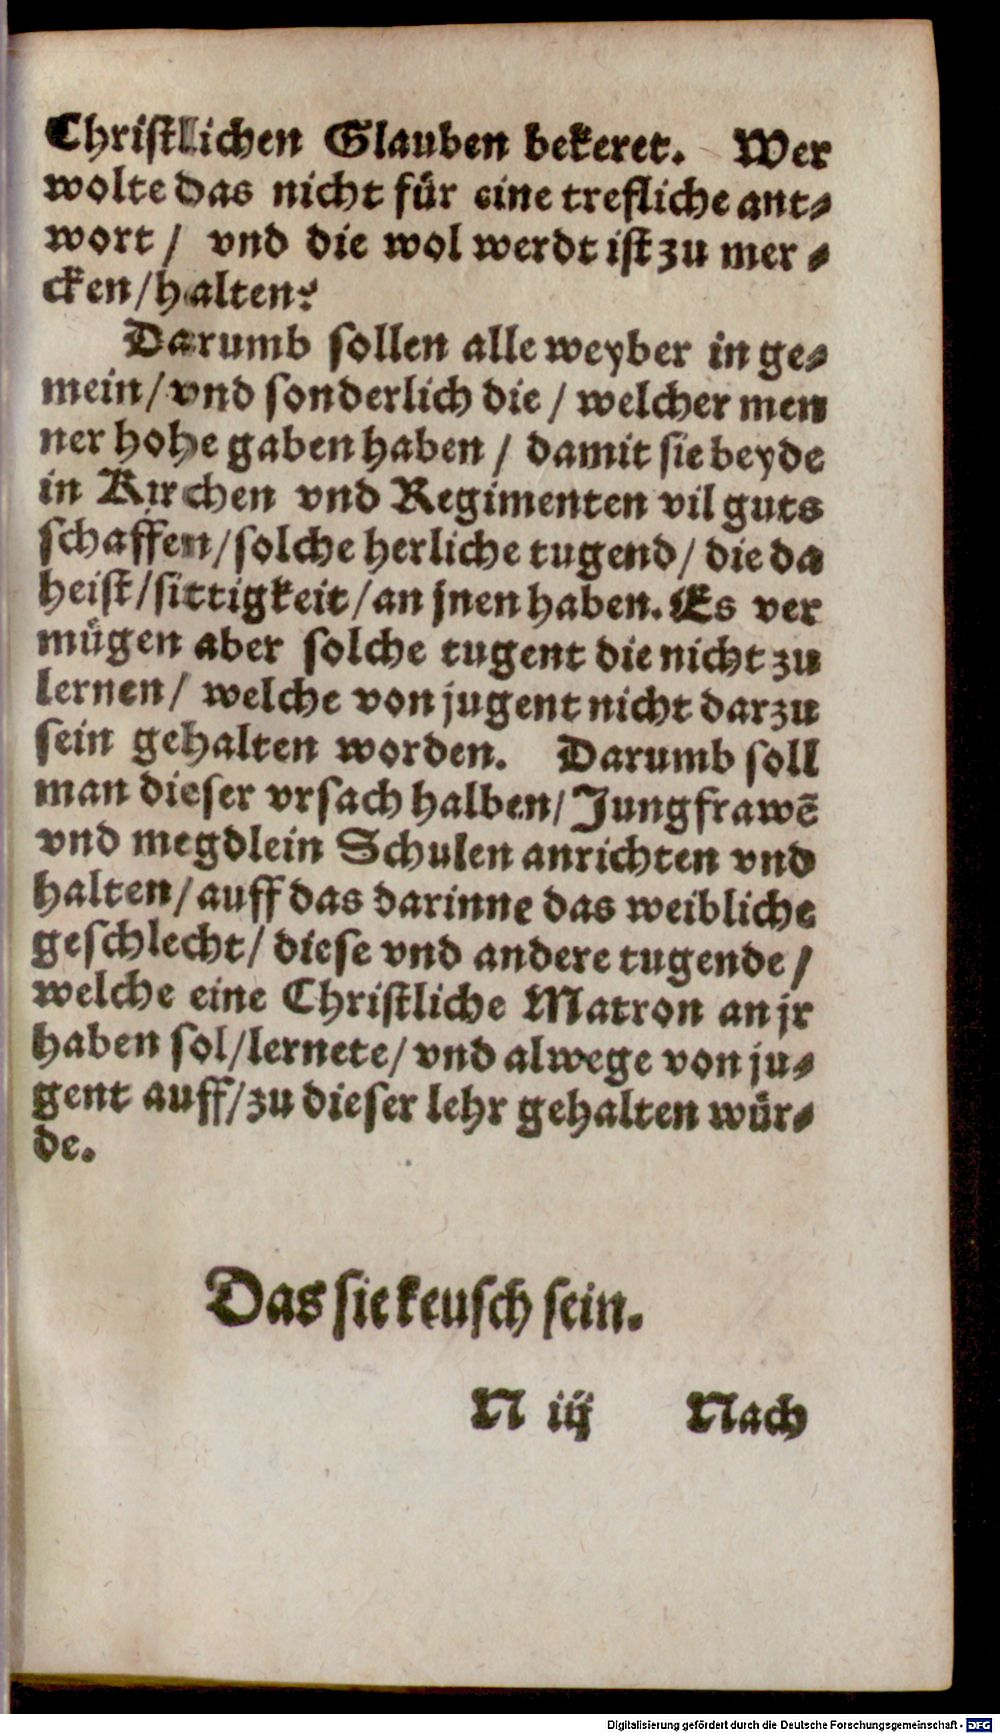 Christlichen Glauben bekeret. Wer
wolte das nicht für eine trefliche ant-
wort / vnd die wol werdt ist zu mer-
cken/halten?
Darumb sollen alle weyber in ge-
mein/ vnd sonderlich die / welcher men
ner hohe gaben haben / damit sie beyde
in Kirchen vnd Regimenten vil guts
schaffen/solche herliche tugend/ die da
heist/sittigkeit/an jnen haben. Es ver
mügen aber solche tugent die nicht zu
lernen/ welche von jugent nicht darzu
sein gehalten worden. Darumb soll
man dieser vrsach halben/ Jungfrawē
vnd megdlein Schulen anrichten vnd
halten/ auff das darinne das weibliche
geschlecht/ diese vnd andere tugende/
welche eine Christliche Matron an jr
haben sol/lernete/ vnd alwege von ju-
gent auff/zu dieser lehr gehalten wür-
de.
Das sie keusch sein.
N iij Nach
Digitalisierung gefördert durch die Deutsche Forschungsgemeinschaft - DFG